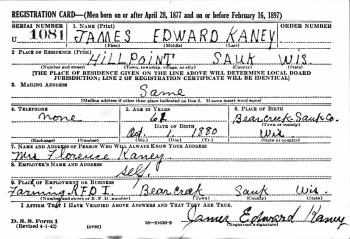 REGISTRATION CARD—(Men born on or after April 28, 1877 and on or before February 16, 1897)
SERIAL NUMBER
1. NAME (Print)
ORDER NUMBER
U 1081
JAMES EDWARD KANEY
(First) (Middle) (Last)
2. PLACE OF RESIDENCE (Print)
HILLPOINT SAUK WIS.
(Number and street) (Town, township, village, or city) (County) (State)
[THE PLACE OF RESIDENCE GIVEN ON THE LINE ABOVE WILL DETERMINE LOCAL BOARD
JURISDICTION; LINE 2 OF REGISTRATION CERTIFICATE WILL BE IDENTICAL]
3. MAILING ADDRESS
Same
[Mailing address if other than place indicated on line 2. If same insert word same]
4. TELEPHONE
5. AGE IN YEARS
6. PLACE OF BIRTH
none
62
Bearcreek-Sauk Co.
DATE OF BIRTH
(Town or county)
1 1880
Wis.
(Exchange) (Number)
(Mo.) (Day) (Yr.)
(State or country)
7. NAME AND ADDRESS OF PERSON WHO WILL ALWAYS KNOW YOUR ADDRESS
Mrs Florence Kaney.
8. EMPLOYER'S NAME AND ADDRESS
self.
9. PLACE OF EMPLOYMENT OR BUSINESS
Farming R.F.D. 1. Bearcreek Sauk Wis.
(Number and street or R. F. D. number) (Town) (County) (State)
I AFFIRM THAT I HAVE VERIFIED ABOVE ANSWERS AND THAT THEY ARE TRUE.
D. S. S. Form 1
(Revised 4-1-42) (over)
James Edward Kaney
(Registrant's signature)